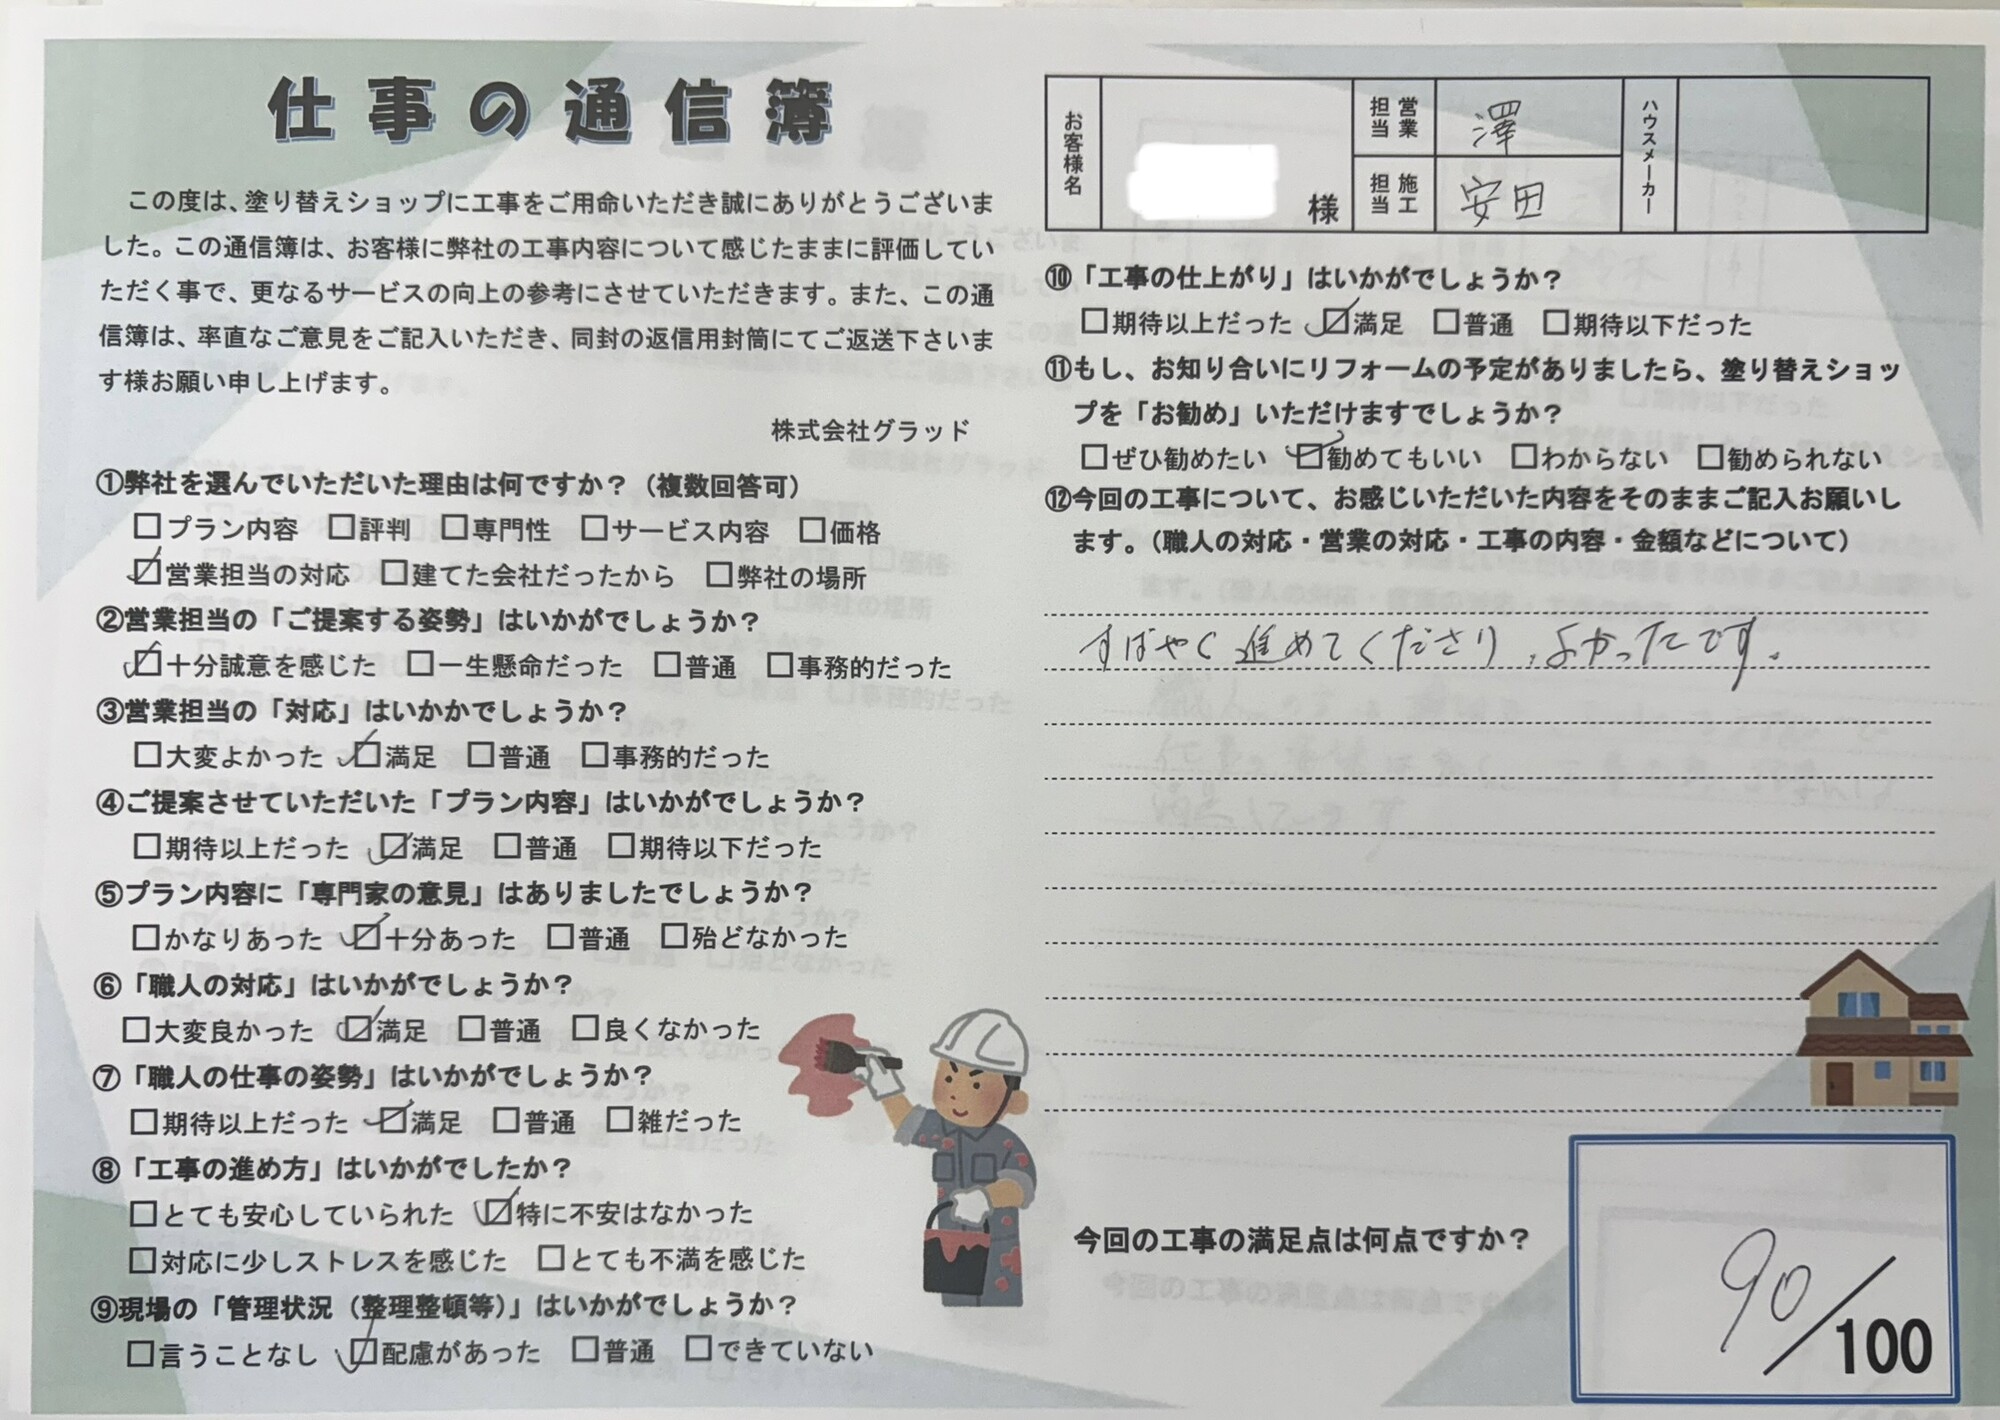 仕事の通信簿
この度は、塗り替えショップに工事をご用命いただき誠にありがとうございま
した。この通信簿は、お客様に弊社の工事内容について感じたままに評価してい
ただく事で、更なるサービスの向上の参考にさせていただきます。また、この通
信簿は、率直なご意見をご記入いただき、同封の返信用封筒にてご返送下さいま
す様お願い申し上げます。
株式会社グラッド
①弊社を選んでいただいた理由は何ですか？（複数回答可）
□プラン内容 □評判 □専門性 □サービス内容 □価格
☑営業担当の対応 □建てた会社だったから □弊社の場所
②営業担当の「ご提案する姿勢」はいかがでしょうか？
☑十分誠意を感じた □一生懸命だった □普通 □事務的だった
③営業担当の「対応」はいかかでしょうか？
□大変よかった ☑満足 □普通 □事務的だった
④ご提案させていただいた「プラン内容」はいかがでしょうか？
□期待以上だった ☑満足 □普通 □期待以下だった
⑤プラン内容に「専門家の意見」はありましたでしょうか？
□かなりあった ☑十分あった □普通 □殆どなかった
⑥「職人の対応」はいかがでしょうか？
□大変良かった ☑満足 □普通 □良くなかった
⑦「職人の仕事の姿勢」はいかがでしょうか？
□期待以上だった ☑満足 □普通 □雑だった
⑧「工事の進め方」はいかがでしたか？
□とても安心していられた ☑特に不安はなかった
□対応に少しストレスを感じた □とても不満を感じた
⑨現場の「管理状況（整理整頓等）」はいかがでしょうか？
□言うことなし ☑配慮があった □普通 □できていない
お客様名 様
営業担当 澤
施工担当 安田
ハウスメーカー
⑩「工事の仕上がり」はいかがでしょうか？
□期待以上だった ☑満足 □普通 □期待以下だった
⑪もし、お知り合いにリフォームの予定がありましたら、塗り替えショッ
プを「お勧め」いただけますでしょうか？
□ぜひ勧めたい ☑勧めてもいい □わからない □勧められない
⑫今回の工事について、お感じいただいた内容をそのままご記入お願いし
ます。（職人の対応・営業の対応・工事の内容・金額などについて）
すばやく進めてくださり、よかったです。
今回の工事の満足点は何点ですか？
90/100